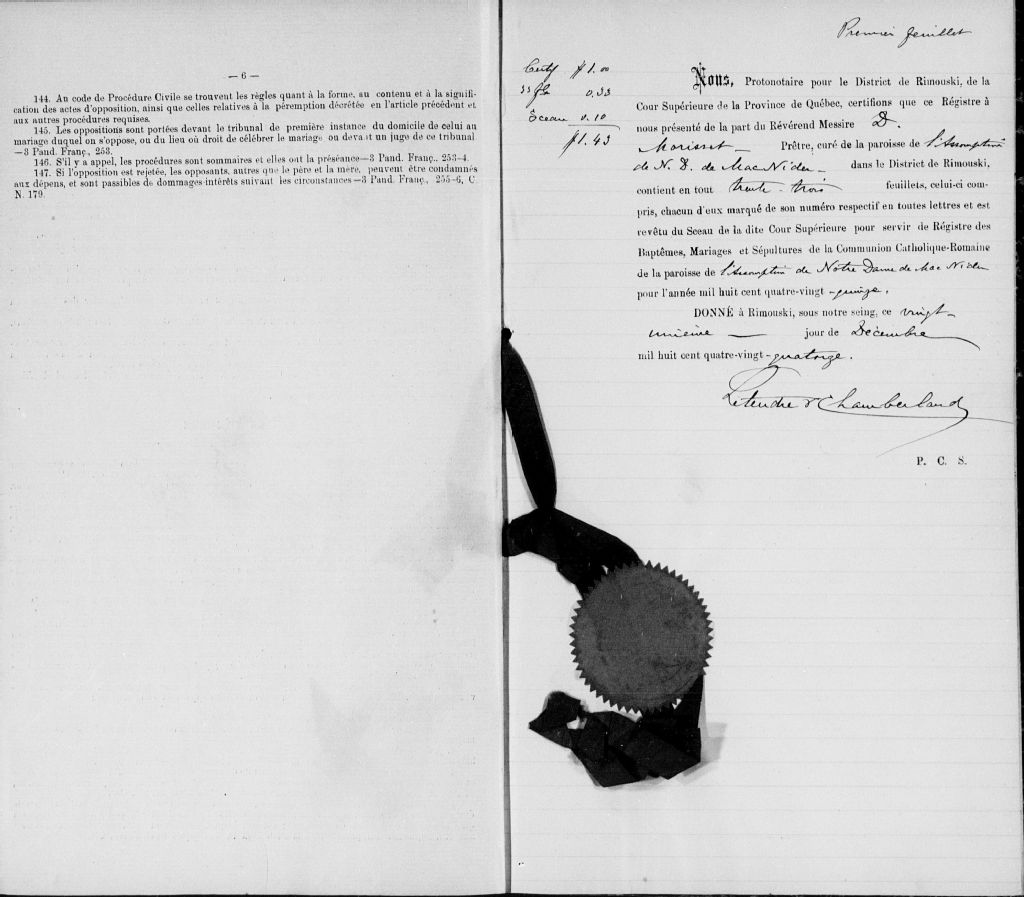 — 6 —
144. Au code de Procédure Civile se trouvent les règles quant à la forme, au contenu et à la signifi-
cation des actes d'opposition, ainsi que celles relatives à la péremption décrétée en l'article précédent et
aux autres procédures requises.
145. Les oppositions sont portées devant le tribunal de première instance du domicile de celui au
mariage duquel on s'oppose, ou du lieu où droit de célébrer le mariage ou devant un juge de ce tribunal
—3 Pand. Franç., 253.
146. S'il y a appel, les procédures sont sommaires et elles ont la préséance—3 Pand. Franç., 253-4.
147. Si l'opposition est rejetée, les opposants, autres que le père et la mère, peuvent être condamnés
aux dépens, et sont passibles de dommages-intérêts suivant les circonstances—3 Pand. Franç., 255-6, C.
N. 179.
Premier feuillet
Certif $1.00
33 fls 0.33
Sceau 0.10
$1.43
Nous, Protonotaire pour le District de Rimouski, de la
Cour Supérieure de la Province de Québec, certifions que ce Régistre à
nous présenté de la part du Révérend Messire D.
Morisset — Prêtre, curé de la paroisse de l'Assomption
de N. D. de MacNider — dans le District de Rimouski,
contient en tout trente-trois feuillets, celui-ci com-
pris, chacun d'eux marqué de son numéro respectif en toutes lettres et est
revêtu du Sceau de la dite Cour Supérieure pour servir de Régistre des
Baptêmes, Mariages et Sépultures de la Communion Catholique-Romaine
de la paroisse de l'Assomption de Notre Dame de Mac Nider
pour l'année mil huit cent quatre-vingt-quinze.
DONNÉ à Rimouski, sous notre seing, ce vingt-
unième — jour de Décembre
mil huit cent quatre-vingt-quatorze.
Letendre & Chamberland
P. C. S.